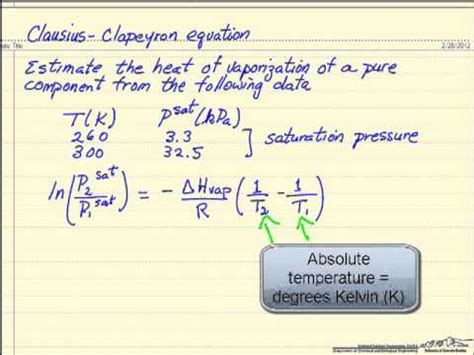 Clausius-Clapeyron equation
2/28/2012
Estimate the heat of vaporization of a pure
component from the following data
T(K) P^sat(kPa)
260 3.3
300 32.5
] saturation pressure
ln(P₂^sat/P₁^sat) = - ΔHvap/R (1/T₂ - 1/T₁)
Absolute
temperature =
degrees Kelvin (K)